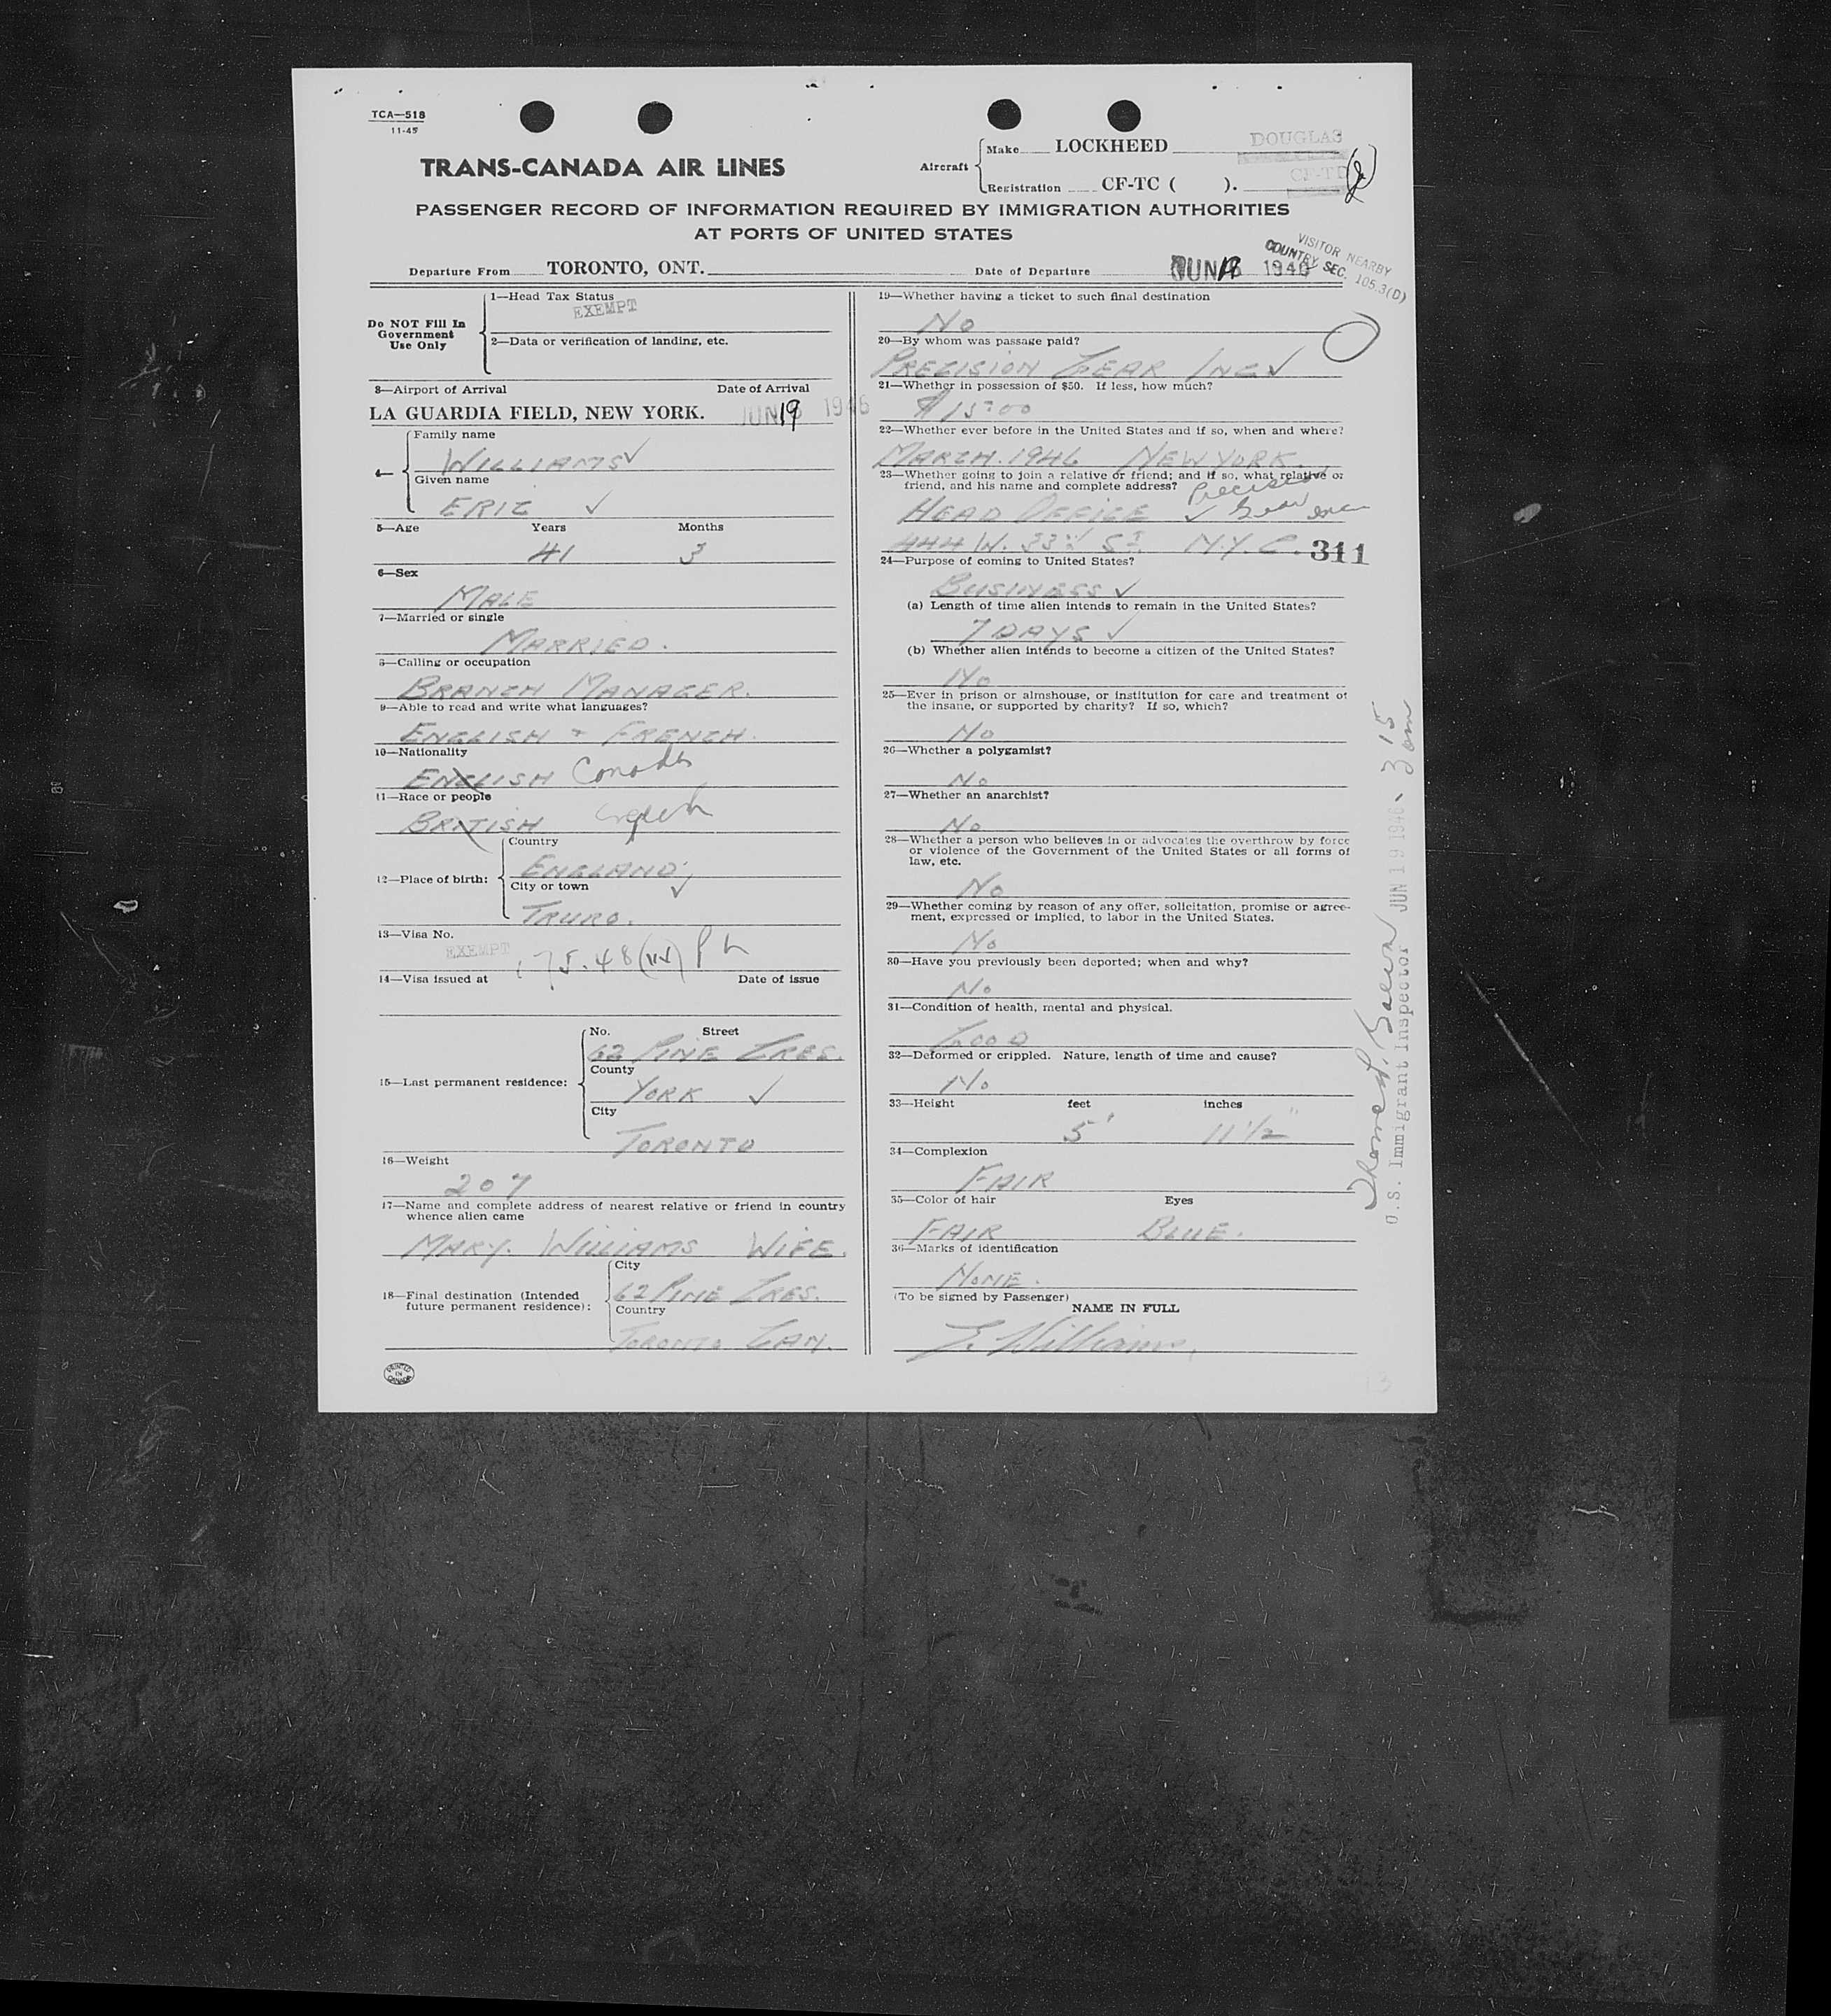 TCA—518
11-45
TRANS-CANADA AIR LINES
Aircraft
Make LOCKHEED DOUGLAS
Registration CF-TC ( ). CF-TD
PASSENGER RECORD OF INFORMATION REQUIRED BY IMMIGRATION AUTHORITIES
AT PORTS OF UNITED STATES
VISITOR NEARBY
COUNTRY SEC. 105.3(D)
Departure From TORONTO, ONT. Date of Departure JUN 19 1946
Do NOT Fill In
Government
Use Only
1—Head Tax Status
EXEMPT
2—Data or verification of landing, etc.
3—Airport of Arrival Date of Arrival
LA GUARDIA FIELD, NEW YORK. JUN 19 1946
4—
Family name
WILLIAMS ✓
Given name
ERIC ✓
5—Age Years Months
41 3
6—Sex
MALE
7—Married or single
MARRIED.
8—Calling or occupation
BRANCH MANAGER.
9—Able to read and write what languages?
ENGLISH + FRENCH.
10—Nationality
ENGLISH
11—Race or people
BRITISH English
12—Place of birth:
Country
ENGLAND ✓
City or town
TRURO.
13—Visa No.
EXEMPT 175.48
14—Visa issued at Date of issue
15—Last permanent residence:
No. Street
62 PINE CRES.
County
YORK ✓
City
TORONTO
16—Weight
207
17—Name and complete address of nearest relative or friend in country
whence alien came
MARY. WILLIAMS WIFE.
18—Final destination (Intended
future permanent residence):
City
62 PINE CRES.
Country
TORONTO CAN.
PRINTED
IN
CANADA
19—Whether having a ticket to such final destination
NO
20—By whom was passage paid?
PRECISION GEAR INC ✓
21—Whether in possession of $50. If less, how much?
$15.00
22—Whether ever before in the United States and if so, when and where?
MARCH. 1946 NEW YORK.
23—Whether going to join a relative or friend; and if so, what relative or
friend, and his name and complete address?
HEAD OFFICE ✓ Precision Gear Inc
444 W. 33rd ST. N.Y.C. 311
24—Purpose of coming to United States?
BUSINESS ✓
(a) Length of time alien intends to remain in the United States?
7 DAYS ✓
(b) Whether alien intends to become a citizen of the United States?
NO
25—Ever in prison or almshouse, or institution for care and treatment of
the insane, or supported by charity? If so, which?
NO
26—Whether a polygamist?
NO
27—Whether an anarchist?
NO
28—Whether a person who believes in or advocates the overthrow by force
or violence of the Government of the United States or all forms of
law, etc.
NO
29—Whether coming by reason of any offer, solicitation, promise or agree-
ment, expressed or implied, to labor in the United States.
NO
30—Have you previously been deported; when and why?
NO
31—Condition of health, mental and physical.
GOOD
32—Deformed or crippled. Nature, length of time and cause?
NO
33—Height feet inches
5' 11 1/2"
34—Complexion
FAIR
35—Color of hair Eyes
FAIR BLUE.
36—Marks of identification
NONE.
(To be signed by Passenger)
NAME IN FULL
E. Williams
U.S. Immigrant Inspector JUN 19 1946